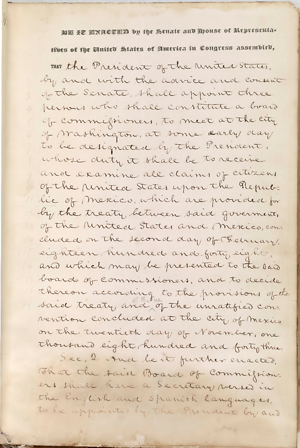 BE IT ENACTED by the Senate and House of Representa-
tives of the United States of America in Congress assembled,
THAT the President of the United States,
by and with the advice and consent
of the Senate, shall appoint three
persons who shall constitute a board
of commissioners, to meet at the city
of Washington, at some early day
to be designated by the President,
whose duty it shall be to receive
and examine all claims of citizens
of the United States upon the Repub-
lic of Mexico, which are provided for
by the treaty, between said governments,
of the United States and Mexico, con-
cluded on the second day of February,
eighteen hundred and forty eight,
and which may be presented to the said
board of commissioners, and to decide
thereon according to the provisions of the
said treaty, and of the unratified con-
vention concluded at the city of Mexico
on the twentieth day of November, one
thousand eight hundred and forty three
Sec. 2 And be it further enacted,
That the said Board of Commission-
ers shall have a Secretary, versed in
the English and Spanish languages,
to be appointed by the President by and